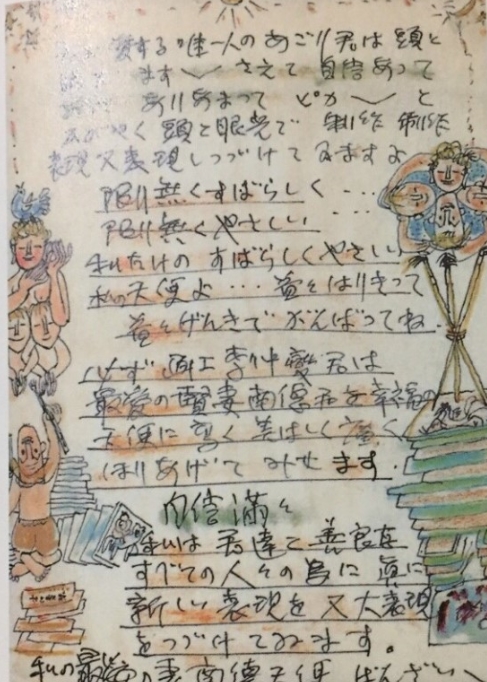 愛する唯一人のあごり君は頭と
ます〜さえて自信あって
ありあまって ピカ〜と
かがやく頭と眼光で 制作 制作
表現又表現しつづけてゐますよ
限り無くすばらしく・・・
限り無くやさしい
私だけのすばらしくやさしい
私の天使よ・・・益々はりきって
益々げんきでがんばってね.
必ず 画工李仲燮君は
最愛の賢妻南德君を幸福の
天使に高く美はしく
ほりあげてみせます.
自信満々
私は君達と善良な
すべての人々の為に真に
新しい表現を又大表現
をつづけてゐます。
私の最愛の妻南德天使ばんざい〜